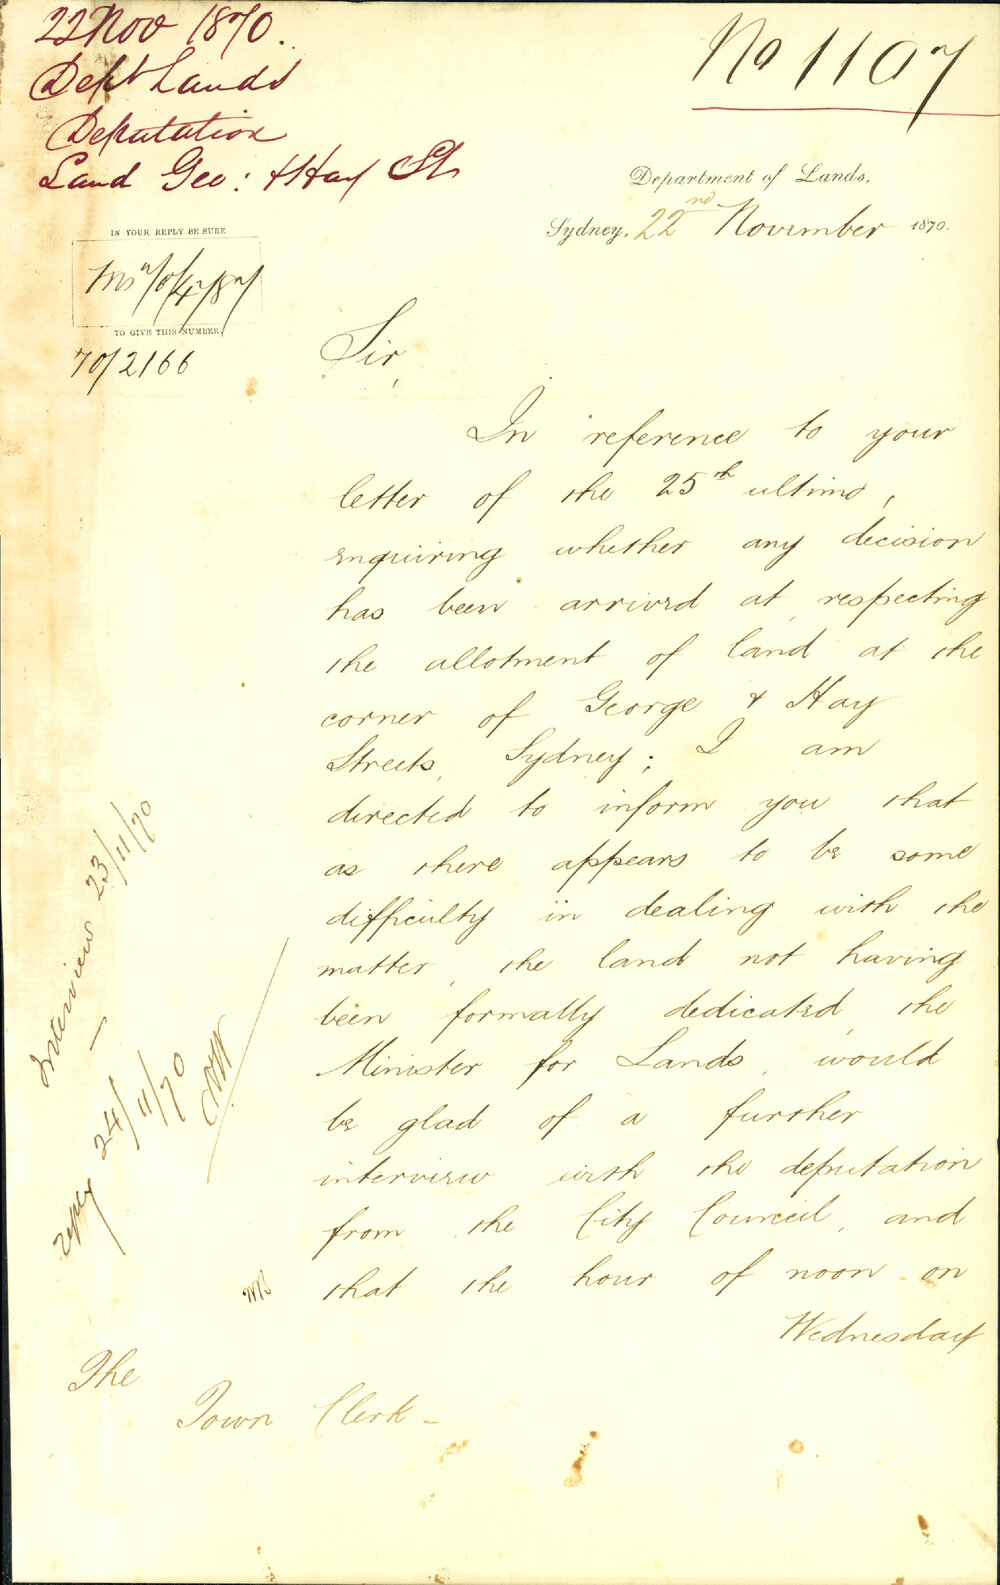 22 Nov 1870.
Dept Lands
Deputation
Land Geo: & Hay St
No 1107
Department of Lands,
Sydney, 22nd November 1870.
IN YOUR REPLY BE SURE
TO GIVE THIS NUMBER.
70/2166
Sir,
In reference to your
letter of the 25th ultimo,
enquiring whether any decision
has been arrived at respecting
the allotment of land at the
corner of George & Hay
Streets, Sydney; I am
directed to inform you that
as there appears to be some
difficulty in dealing with the
matter, the land not having
been formally dedicated, the
Minister for Lands, would
be glad of a further
interview with the deputation
from the City Council, and
that the hour of noon on
Wednesday
The
Town Clerk -
Interview 23/11/70
reply 24/11/70